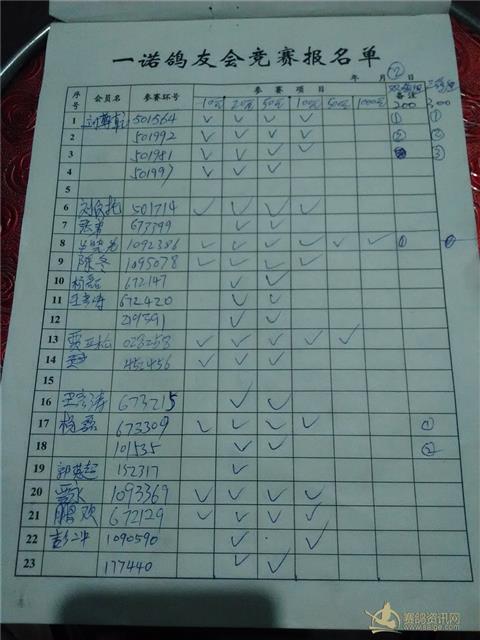 一诺鸽友会竞赛报名单
年 月 日
序号 会员名 参赛环号 参赛项目 备注
10元 20元 50元 100元 500元 1000元 200 300
1 501564 ✓ ✓ ✓ ✓ ① ①
2 501992 ✓ ✓ ✓ ✓ ② ②
3 501981 ✓ ✓ ✓ ✓ ③
4 501997 ✓ ✓ ✓ ✓
5
6 501714 ✓ ✓ ✓ ✓
7 673399 ✓ ✓
8 1092386 ✓ ✓ ✓ ✓ ✓ ✓ ①
9 陈冬 1095078 ✓ ✓ ✓ ✓
10 杨磊 672147 ✓ ✓
11 王彦涛 672420 ✓ ✓
12 219391 ✓ ✓
13 贾亚松 028258 ✓ ✓ ✓ ✓ ✓
14 452456 ✓ ✓ ✓
15
16 王彦涛 673215 ✓ ✓
17 杨磊 673309 ✓ ✓ ✓ ✓ ①
18 101535 ✓ ✓ ②
19 郭英超 152317 ✓
20 1093369 ✓ ✓ ✓ ✓
21 鹏欢 672129 ✓ ✓ ✓ ✓
22 1090590 ✓ ✓
23 177440 ✓ ✓
赛鸽资讯网
www.saige.com